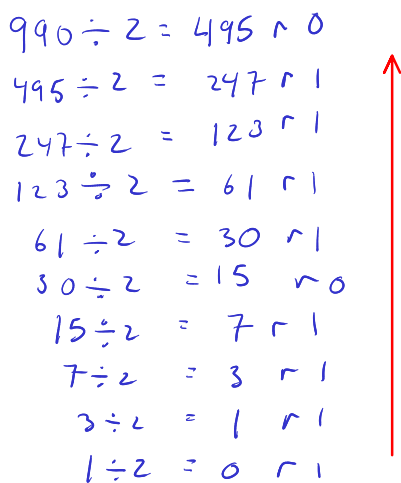 990 ÷ 2 = 495 r 0
495 ÷ 2 = 247 r 1
247 ÷ 2 = 123 r 1
123 ÷ 2 = 61 r 1
61 ÷ 2 = 30 r 1
30 ÷ 2 = 15 r 0
15 ÷ 2 = 7 r 1
7 ÷ 2 = 3 r 1
3 ÷ 2 = 1 r 1
1 ÷ 2 = 0 r 1